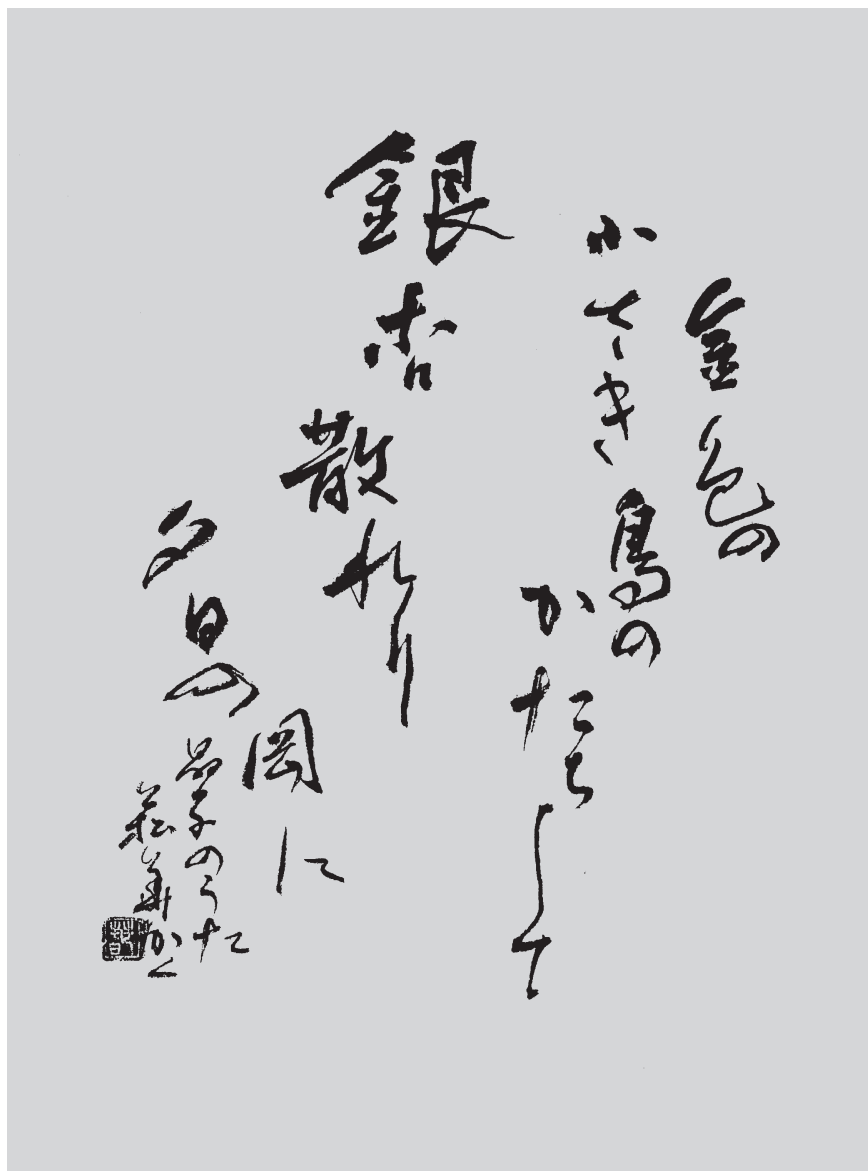 金色の
小さき鳥の
かたちして
銀杏散れり
夕日の
岡に
晶子のうた
かく